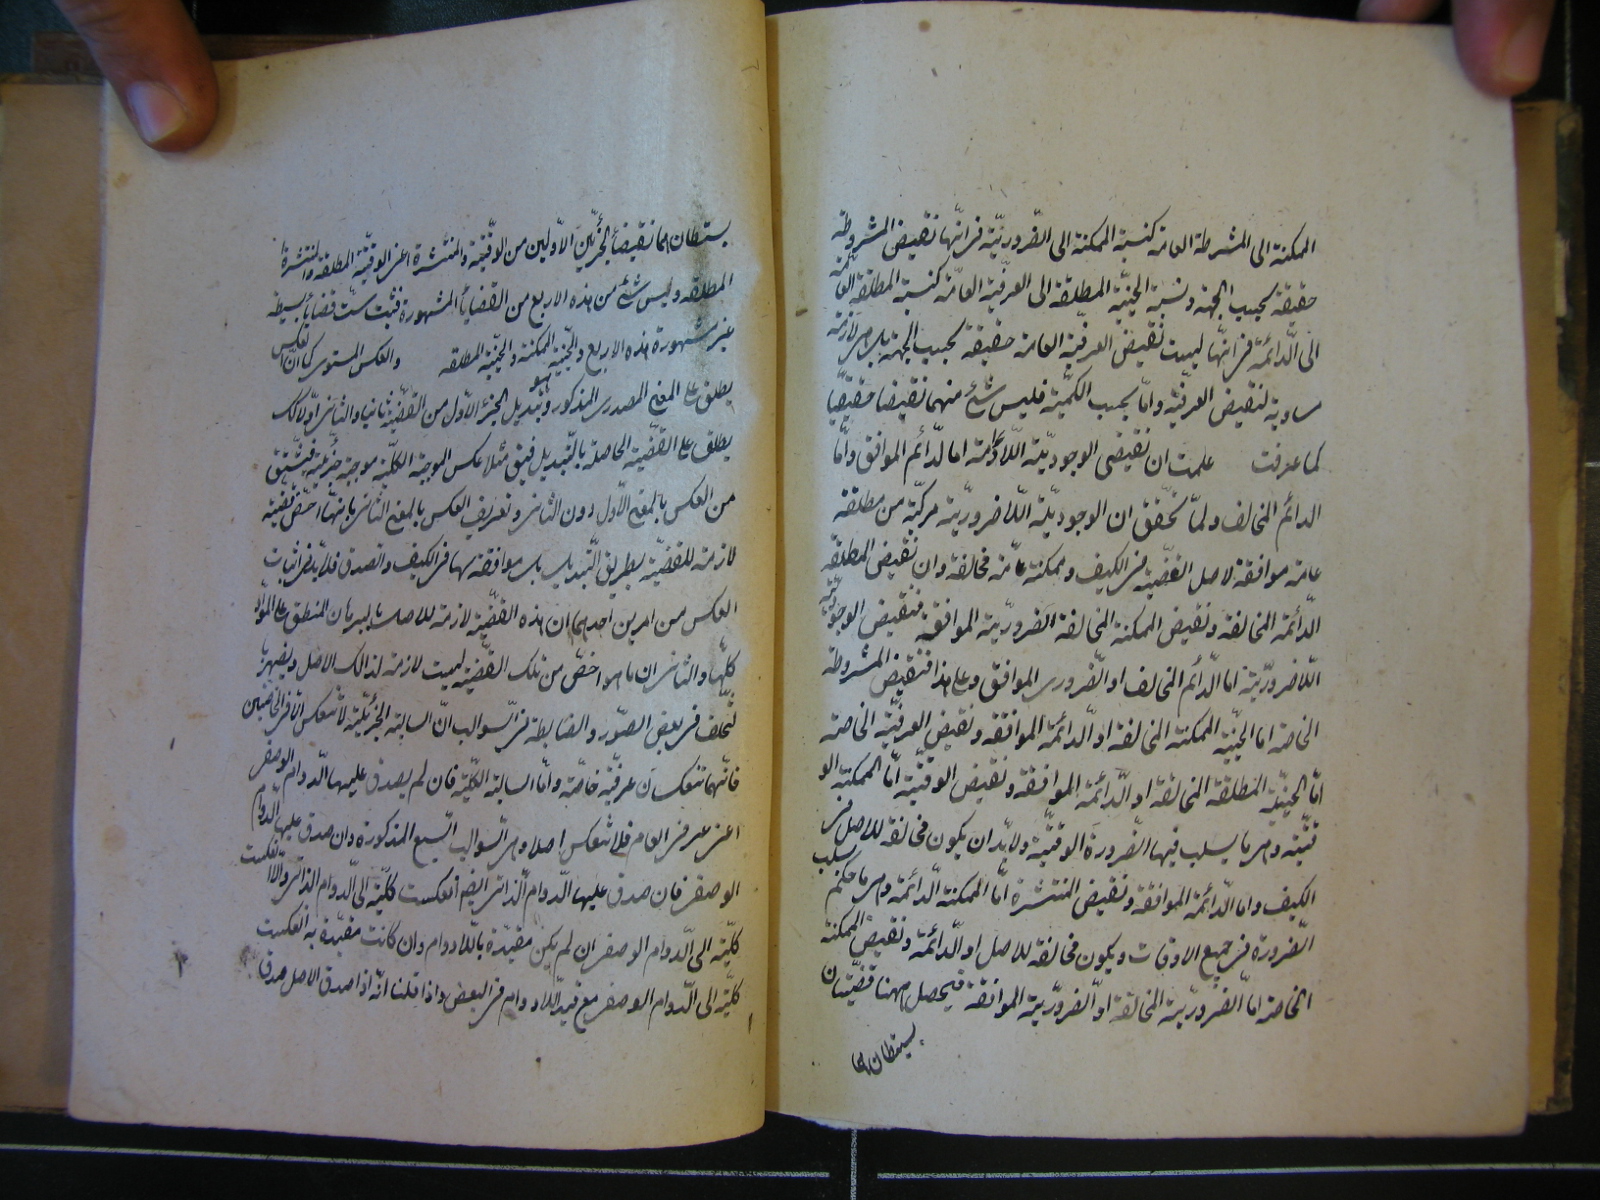 الممكنة الى المشرطة العامة كنسبة الممكنة الى الضّروريّة فرانّها نقيض المشروطة
حقيقة بحسب الجهة ونسبة الحينيّة المطلقة الى العرفيّة العامّة كنسبة المطلقة العامّة
الى الدّائمة فرانّها ليست نقيض العرفيّة العامة حقيقة بحسب الجهة بل هى لازمة
مساوية لنقيض العرفيّة وامّا بحسب الكمّية فليس شئ منهما نقيضا حقيقيّا
كما عرفت علمت ان نقيضى الوجوديّة اللّادائمة اما الدّائم الموافق وامّا
الدائم المخالف ولمّا تحقّق ان الوجوديّة اللّاضروريّة مركبّة من مطلقة
عامة موافقة لاصل القضّية فى الكيف وممكنة عامّة مخالفة وان نقيض المطلقة
الدّائمة المخالفة ونقيض الممكنة المخالفة الضّروريّة الموافقة فنقيض الوجوديّة
اللّاضروريّة امّا الدّائم المخالف او الضّرورى الموافق وعلى هذا فنقيض المشروطة
الخاصة امّا الحينيّة الممكنة المخالفة او الدّائمة الموافقة ونقيض العرفيّة الخاصة
امّا الحينيّة المطلقة المخالفة او الدّائمة الموافقة ونقيض الوقتيّة امّا الممكنة الو
قتيّة وهى ما يسلب فيها الضّرورة الوقتيّة ولابدّ ان يكون مخالفة للاصل فى
الكيف وامّا الدّائمة الموافقة ونقيض المنتشرة امّا الممكنة الدّائمة وهى ما حكم بسلب
الضّرورة فى جميع الاوقات ويكون مخالفة للاصل او الدّائمة ونقيض الممكنة
الخاصة امّا الضّروريّة المخالفة او الضّروريّة الموافقة فيحصل ههنا قضيّتان
بسيطتان هما
بسيطتان هما نقيضا الجزئين الاوّلين من الوقتيّة والمنتشرة اعنى الوقتيّة المطلقة والمنتشرة
المطلقة وليس شئ من هذه الاربع من القضايا المشهورة فثبت ستّ قضايا بسيطة
غير مشهورة هذه الاربع والحينية الممكنة والحينيّة المطلقة والعكس المستوى كما ان العكس
يطلق على المعنى المصدرى المذكور وهو تبديل الجزء الاوّل من القضيّة ثانيا والثانى اوّلا كذلك
يطلق على القضّية الحاصلة بالتّبديل فيق مثلا عكس الموجبة الكلّية موجبة جزئية فيشتق
من العكس بالمعنى الاوّل دون الثانى وتعريف العكس بالمعنى الثانى بانّها اخصّ قضيّة
لازمة للقضيّة بطريق التّبديل موافقة لها فى الكيف والصدق فلابدّ فى اثبات
العكس من امرين احدهما ان هذه القضّية لازمة للاصل بالبرهان المنطبق على الموادّ
كلّها والثانى ان ما هو اخصّ من تلك القضيّة ليست لازمة لذالك الاصل ويظهر با
لتّخلف فى بعض الصّور والضابطة فى السّوالب انّ السالبة الجزئيّة لا تنعكس الّا فى الخاصّتين
فانّهما تنعكسان عرفيّة خاصّة وامّا السالبة الكلّية فان لم يصدق عليها الدّوام الوصفى
اعنى عرفى العام فلا تنعكس اصلا وهى السّوالب السّبع المذكورة وان صدق عليها الدّوام
الوصفى فان صدق عليها الدّوام الذّاتى ايضا انعكست كلّية الى الدّوام الذّاتى والّا انعكست
كلّية الى الدّوام الوصفى ان لم يكن مقيّدة باللّادوام وان كانت مقيّدة به انعكست
كلّية الى الدّوام الوصفى مع قيد اللّادوام فى البعض واذا قلنا انّه اذا صدق الاصل صدق